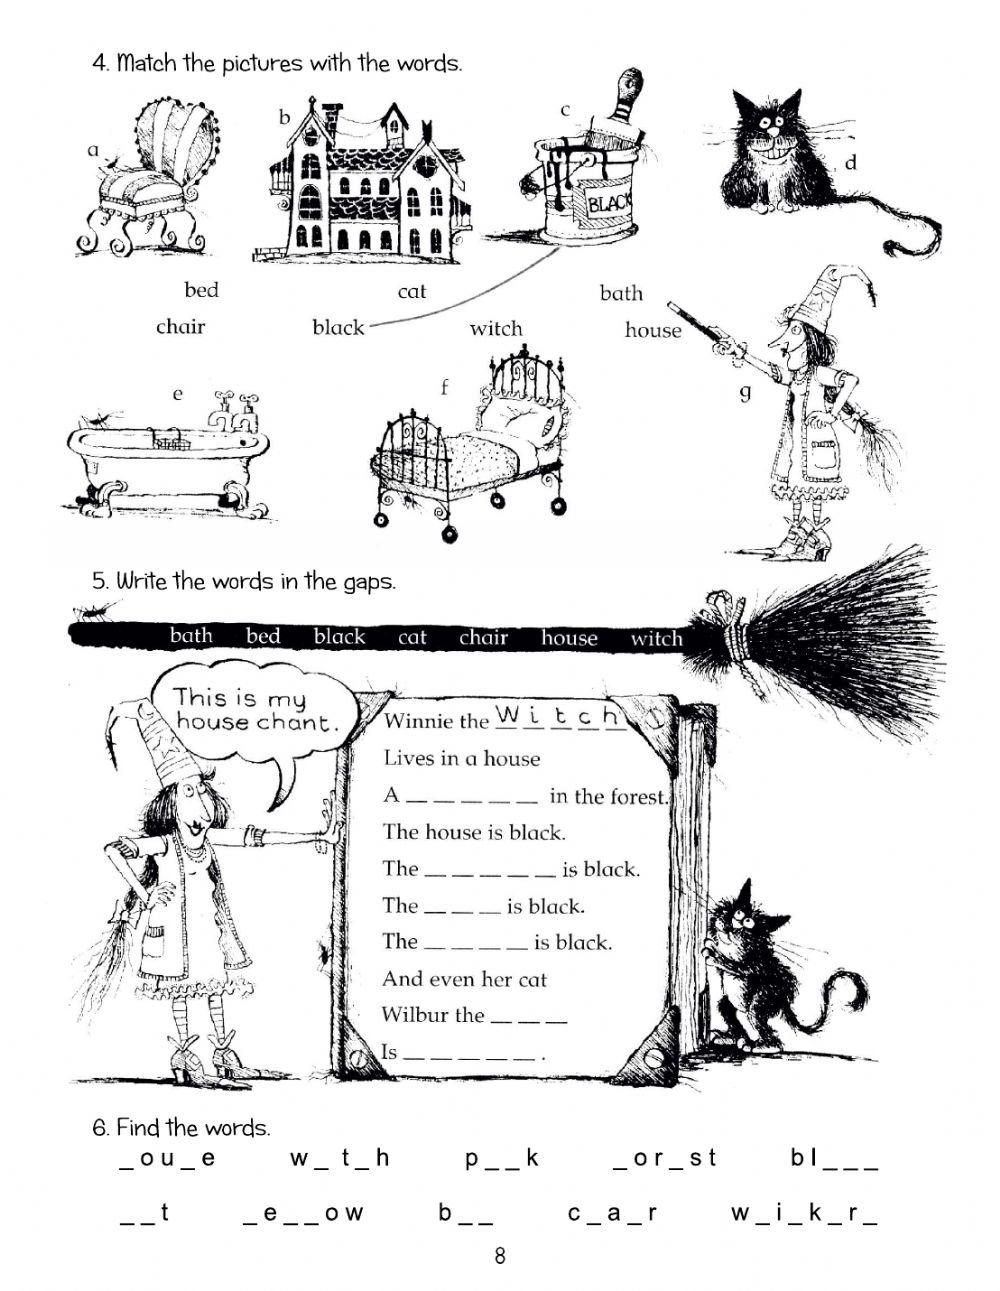 4. Match the pictures with the words.
a
b
c
BLACK
d
bed
cat
bath
chair
black
witch
house
e
f
g
5. Write the words in the gaps.
bath bed black cat chair house witch
This is my
house chant.
Winnie the W i t c h
Lives in a house
A _ _ _ _ _ in the forest.
The house is black.
The _ _ _ _ _ is black.
The _ _ _ is black.
The _ _ _ _ is black.
And even her cat
Wilbur the _ _ _
Is _ _ _ _ _ .
6. Find the words.
_ou_e w_t_h p__k _or_st bl___
__t _e__ow b__ c_a_r w_i_k_r_
8